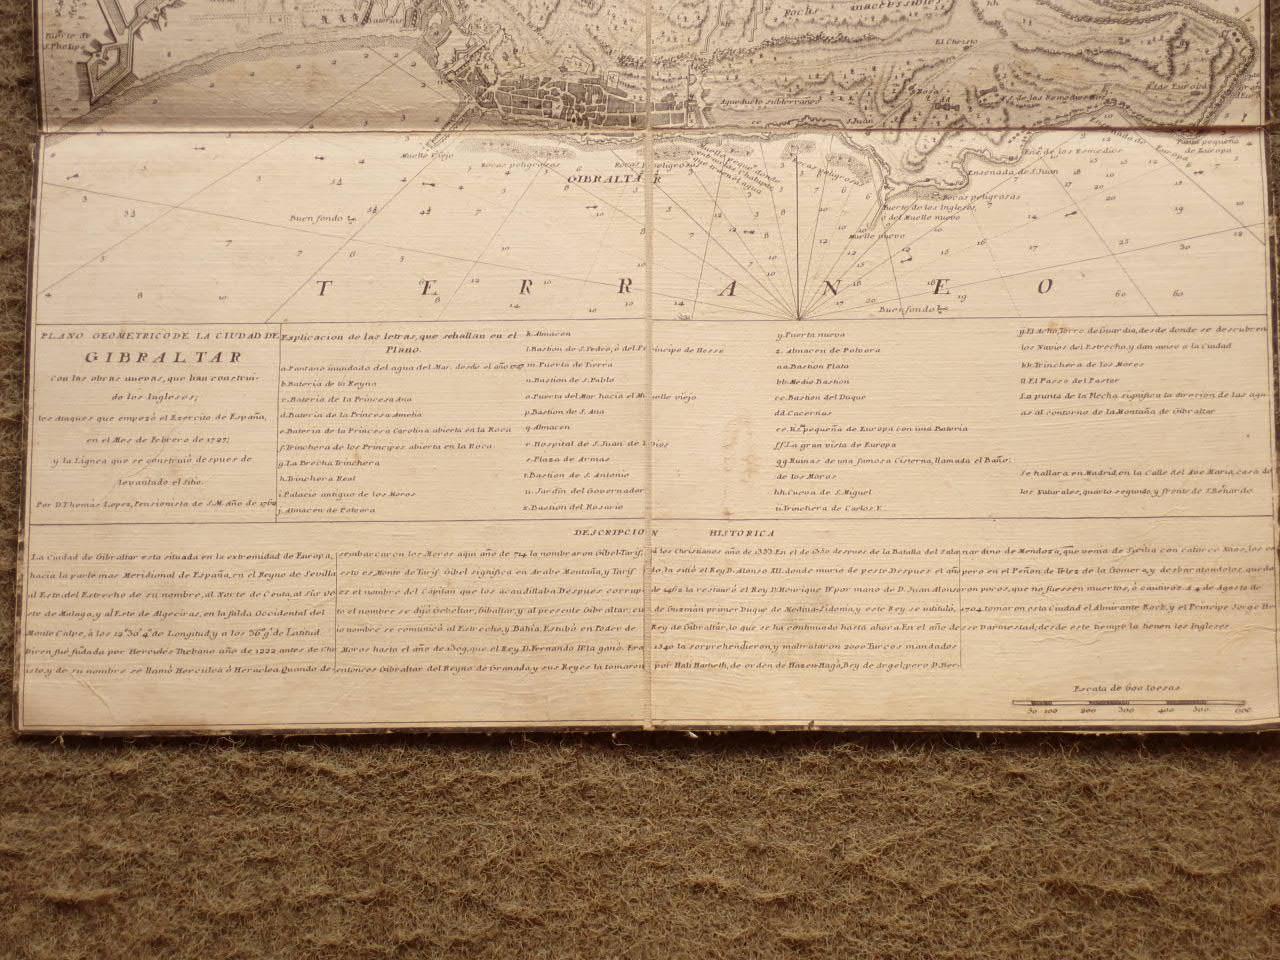 Fuerte de
S. Phelipe
Rocas inaccesibles
hh
El Christo
Aqueducto subterraneo
cc
S. Juan
Rosa
dd
N.S. de los Remedios
P.ta de Europa
Muelle viejo
Rocas peligrosas
Rocas peligrosas
Rocas peligrosas
Ens.e de los Remedios
Ensenada de S. Juan
Punta pequeña
de Europa
GIBRALTAR
Rocas peligrosas
Puerto de los Ingleses,
ò del Muelle nuevo
Muelle nuevo
Buen fondo
Buen fondo
T E R R A N E O
PLANO GEOMETRICO DE LA CIUDAD DE
GIBRALTAR
Con las obras nuevas, que han construi-
do los Ingleses;
los Ataques que empezó el Exercito de España,
en el Mes de Febrero de 1727;
y la Lignea que se construiò despues de
levantado el Sitio.
Por D. Thomàs Lopez, Pensionista de S.M. Año de 1762
Explicacion de las letras, que se hallan en el
Plano.
a. Pantano inundado del agua del Mar, desde el año 1727
b. Bateria de la Reyna
c. Bateria de la Princesa Ana
d. Bateria de la Princesa Amelia
e. Bateria de la Princesa Carolina abierta en la Roca
f. Trinchera de los Principes abierta en la Roca
g. La Brecha Trinchera
h. Trinchera Real
i. Palacio antiguo de los Moros
j. Almacen de Polvora
k. Almacen
l. Bastion de S. Pedro, ò del Principe de Hesse
m. Puerta de Tierra
n. Bastion de S. Pablo
o. Puerta del Mar hacia el Muelle viejo
p. Bastion de S. Ana
q. Almacen
r. Hospital de S. Juan de Dios
s. Plaza de Armas
t. Bastion de S. Antonio
u. Jardin del Governador
x. Bastion del Rosario
y. Puerta nueva
z. Almacen de Polvora
aa. Bastion Plata
bb. Medio Bastion
cc. Bastion del Duque
dd. Cacernas
ee. P.ta pequeña de Europa con una Bateria
ff. La gran vista de Europa
gg. Ruinas de una famosa Cisterna, llamada el Baño
de los Moros
hh. Cueva de S. Miguel
ii. Trinchera de Carlos V.
y. El Acho, Torre de Guardia, desde donde se descubren
los Navios del Estrecho, y dan aviso a la Ciudad
kk. Trinchera de los Moros
ll. El Passo del Pastor
La punta de la Flecha significa la direcion de las agu-
as al contorno de la Montaña de Gibraltar
Se hallara en Madrid, en la Calle del Ave Maria, casa de
los Naturales, quarto segundo, y frente de S. Benardo.
DESCRIPCION HISTORICA
La Ciudad de Gibraltar esta situada en la extremidad de Europa,
hacia la parte mas Meridional de España, en el Reyno de Sevilla
al Est del Estrecho de su nombre, al Norte de Ceuta, al Sur Oe
este de Malaga, y al Este de Algeciras, en la falda Occidental del
Monte Calpe, à los 12°30'4" de Longitud, y a los 36° 9' de Latitud
Quien fué fudada por Hercules Thebano año de 1222 antes de Chr
isto, y de su nombre se llamò Herculea ò Heraclea. Quando de
sembarcaron los Moros aqui año de 714 la nombraron Gibel-Tarif,
esto es, Monte de Tarif. Gibel significa en Arabe Montaña, y Tarif
es el nombre del Capitan que los acaudillaba. Despues corrup
to el nombre se dijó Gebeltar, Gibaltar, y al presente Gibraltar; cu
io nombre se comunicò al Estrecho, y Bahia. Estubò en Poder de
Moros hasta el año de 1309, que el Rey D. Fernando IV. la ganò. Era
entonces Gibraltar del Reyno de Granada, y sus Reyes la tomaron
à los Christianos año de 1333. En el de 1350 despues de la Batalla del Sala
do, la sitiò el Rey D. Alonso XII. donde muriò de peste. Despues el año
de 1462 la restaurò el Rey D. Henrique IV. por mano de D. Juan Alonso
de Guzmán primer Duque de Medina-Sidonia, y este Rey se intituló,
Rey de Gibraltar, lo que se ha continuado hasta ahora. En el año de
1540 la sorprehendieron, y maltrataron 2000 Turcos mandados
por Hali Hameth, de orden de Hazen-Hagà, Bey de Argel, pero D. Ber
nardino de Mendoza, que venia de Sicilia con catorce Naos, los en
pero en el Peñon de Velez de la Gomera, y desbaratandolos, que da
ron pocos, que no fuessen muertos, ò cautivos. A 4 de Agosto de
1704 tomaron esta Ciudad el Almirante Rock, y el Principe Jorge He
sse Darmestad; desde este tiempo la tienen los Ingleses
Escala de 600 toesas
50 100 200 300 400 500 600